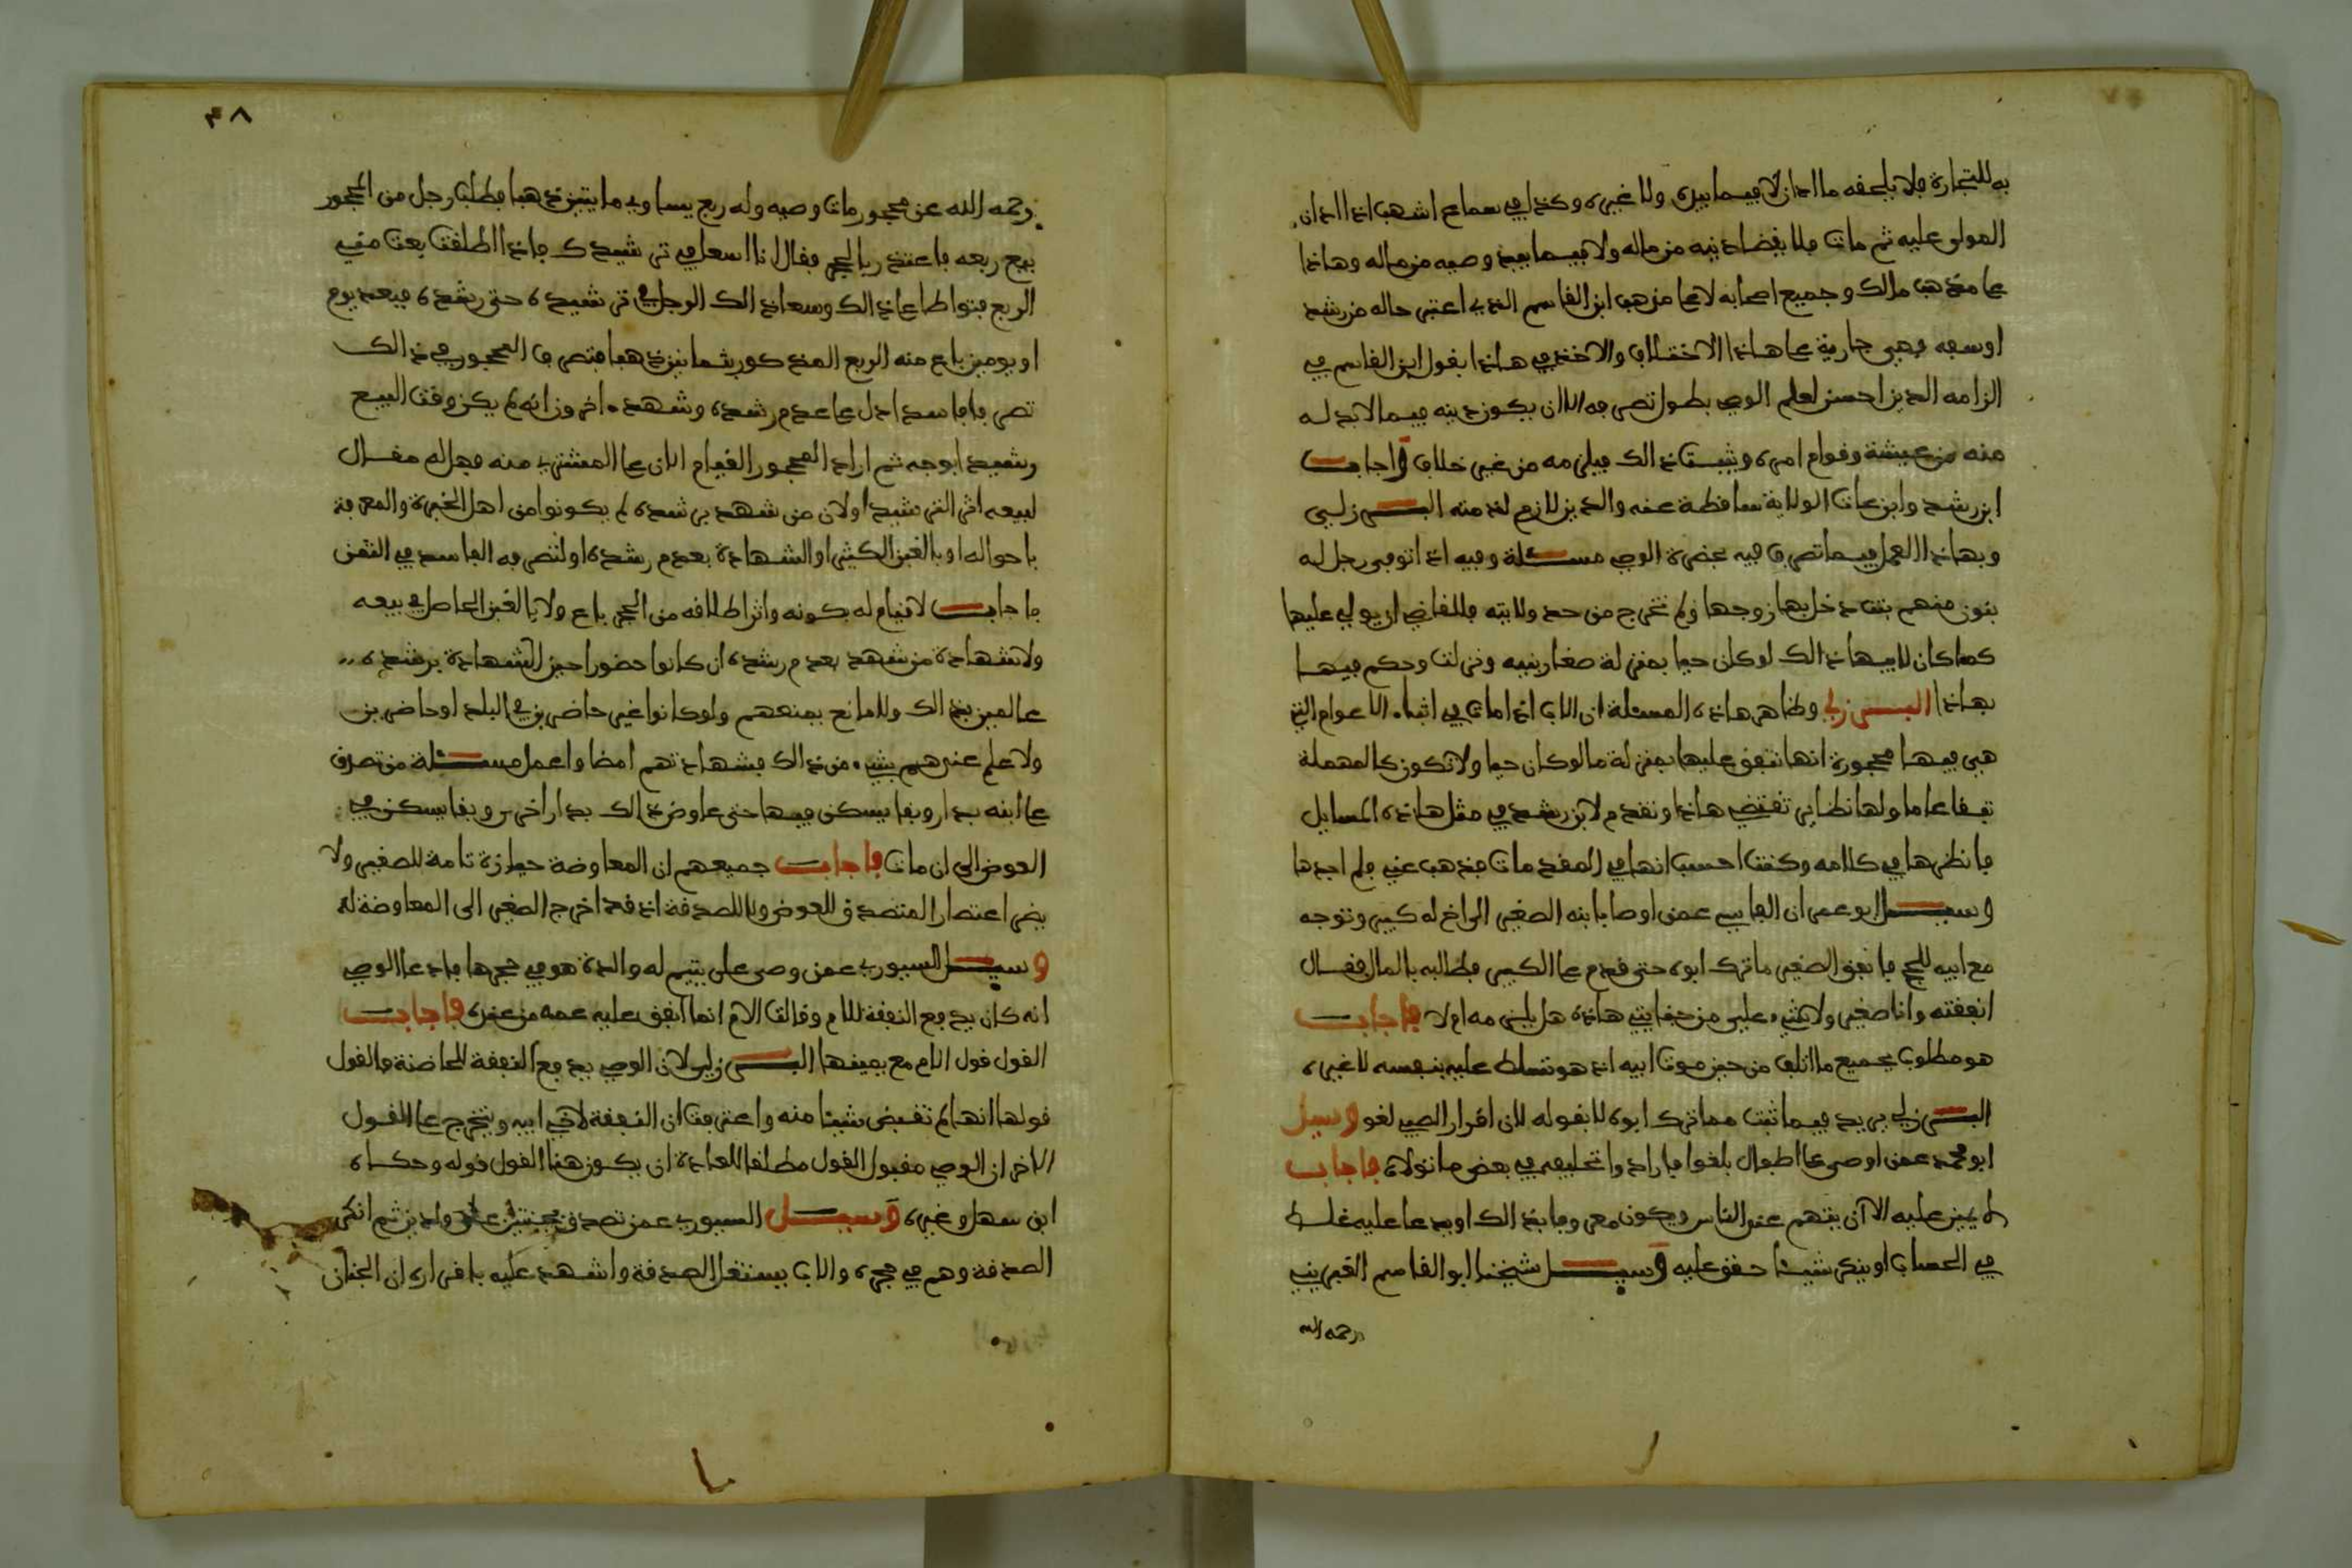 به للتجارة فلا يلحقه ما ادان لا فيما بيده ولا غيره وكذا في سماع اشهب اذا ادان
المولى عليه ثم مات فلا يقضا دينه من ماله ولا فيما بعد وصيه من ماله وهاذا
على مذهب مالك وجميع اصحابه لا على مذهب ابن القاسم الذي اعتبر حاله من رشد
او سفه فهي جارية على هاذا الاختلاف والاخذ في هاذا بقول ابن القاسم في
الزامه الدين احسن لعلم الوصي بطول تصرفه الا ان يكون دينه فيما لا بد له
منه من عيشة وقوام امره ويثبت ذالك فيلزمه من غير خلاف واجاب
ابن رشد وابن عات الولاية ساقطة عنه والدين لازم لذمته البــرزلي
وبهاذا العمل فيما تصرف فيه بحضرة الوصي مســئلة وفيه اذا توفي رجل له
بنون منهم بنت دخل بها زوجها ولم تخرج من حد ولايته فللقاضي ان يولي عليها
كما كان لابيها ذالك لو كان حيا بمنزلة صغار بنيه ونزلت وحكم فيها
بهاذا البــرزلي وظاهر هاذه المسئلة ان الاب اذا مات في اثناء الاعوام التي
هي فيها محجورة انها تنفق عليها بمنزلة ما لو كان حيا ولا تكون كالمهملة
تبقا عاما ولها نظاير تقتضي هاذا وتقدم لابن رشد في مثل هاذه المسايل
فانظرها في كلامه وكنت احسب انها في المقدمات فذهب عني ولم اجدها
وسيــل ابو عمران الفاسي عمن اوصا بابنه الصغير الى اخ له كبير وتوجه
مع ابيه للحج فانفق الصغير ما ترك ابوه حتى قدم على الكبير فطالبه بالمال فقال
انفقته وانا صغير ولا شيء علي من جنايتي هاذه هل يلزمه ام لا فاجاب
هو مطلوب بجميع ما اتلف من حين موت ابيه اذ هو تسلط عليه بنفسه لا غيره
البــرزلي يريد فيما ثبت مما ترك ابوه لا بقوله لان اقرار الصبي لغو وسيل
ابو محمد عمن اوصى على اطفال بلغوا فاراد وا تحليفه في بعض ما تولاه فاجاب
لا يمين عليه الا ان يتهم عند الناس ويكون معروفا بذالك او يدعا عليه غلــط
في الحساب او ينكر شيئا حقق عليه وسيــل شيخنا ابو القاسم الغبريني
رحمه الله
٣٨
رحمه الله عن محجور مات وصيه وله ربع يساوي ماءيتين ذهبا فطلب رجل من المحجور
بيع ربعه فاعتذر بالحجر فقال انا اسعا في ترشيدك فاذا اطلقت بعت مني
الربع فتواطا على ذالك وسعا ذالك الرجل في ترشيده حتى رشده فبعد يوم
او يومين باع منه الربع المذكور بثمانين ذهبا فتصرف المحجور في ذالك
تصرفا فاسدا دل على عدم رشده وشهد ءاخرون انه لم يكن وقت البيع
رشيدا بوجه ثم اراد المحجور القيام الان على المشتري منه فهل له مقــال
لبيعه اثر الترشيد او لان من شهد برشده لم يكونوا من اهل الخبرة والمعرفة
باحواله او بالغبن الكثير او الشهادة بعدم رشده او لتصرفه الفاسد في الثمن
فاجاب لا قيام له بكونه واثر اطلاقه من الحجر باع ولا بالغبن الحاصل في بيعه
ولا شهادة من شهد بعدم رشده ان كانوا حضورا حين الشهادة برشده
عالمين بذالك ولا مانع يمنعهم ولو كانوا غير حاضرين في البلد او حاضرين
ولا علم عندهم بشيء من ذالك فشهادتهم امضا واعمل مســئلة من تصدق
على ابنه بدار وبقا يسكن فيها حتى عاوض ذالك بدار اخرى وبقا يسكن في
العوض الى ان مات فاجاب جميعهم ان المعاوضة حيازة تامة للصغير ولا
يضر اعتمار المتصدق للعوض ولا للصدقة اذ قد اخرج الصغير الى المعاوضة له
وسيــل السيوري عمن وصى على يتيم له والدة هو في حجرها فادعا الوصي
انه كان يدفع النفقة للام وقالت الام انما انفق عليه عمه من عنده فاجاب
القول قول الام مع يمينها البــرزلي لان الوصي يدفع النفقة للحاضنة فالقول
قولها انها لم تقبض شيئا منه واعترفت ان النفقة لاخي ابيه ويتخرج على القول
الاخر ان الوصي مقبول القول مطلقا للعادة ان يكون هنا القول قوله وحكاه
ابن سهل وغيره وسيــل السيوري عمن تصدق بجنتين على ولدين ثم انكر
الصدقة وهم في حجره والاب يستغل الصدقة واشهد عليه باقراره ان الجنان